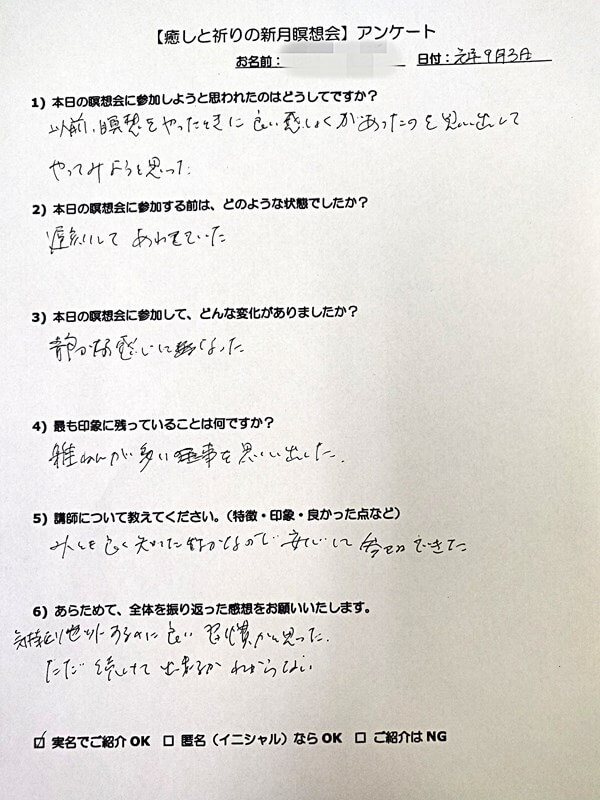 【癒しと祈りの新月瞑想会】アンケート
お名前： 日付：元年9月3日
1）本日の瞑想会に参加しようと思われたのはどうしてですか？
以前、瞑想をやったときに良い感しょくがあったのを思い出して
やってみようと思った。
2）本日の瞑想会に参加する前は、どのような状態でしたか？
遅刻して あわてていた
3）本日の瞑想会に参加して、どんな変化がありましたか？
静かな感じになった
4）最も印象に残っていることは何ですか？
雑ねんが多い事を思い出した。
5）講師について教えてください。（特徴・印象・良かった点など）
良く知った なので安心して 参加できた
6）あらためて、全体を振り返った感想をお願いいたします。
気持ちリセットするのに良い習慣かと思った。
ただ続けて出来るかわからない
☑ 実名でご紹介OK □ 匿名（イニシャル）ならOK □ ご紹介はNG